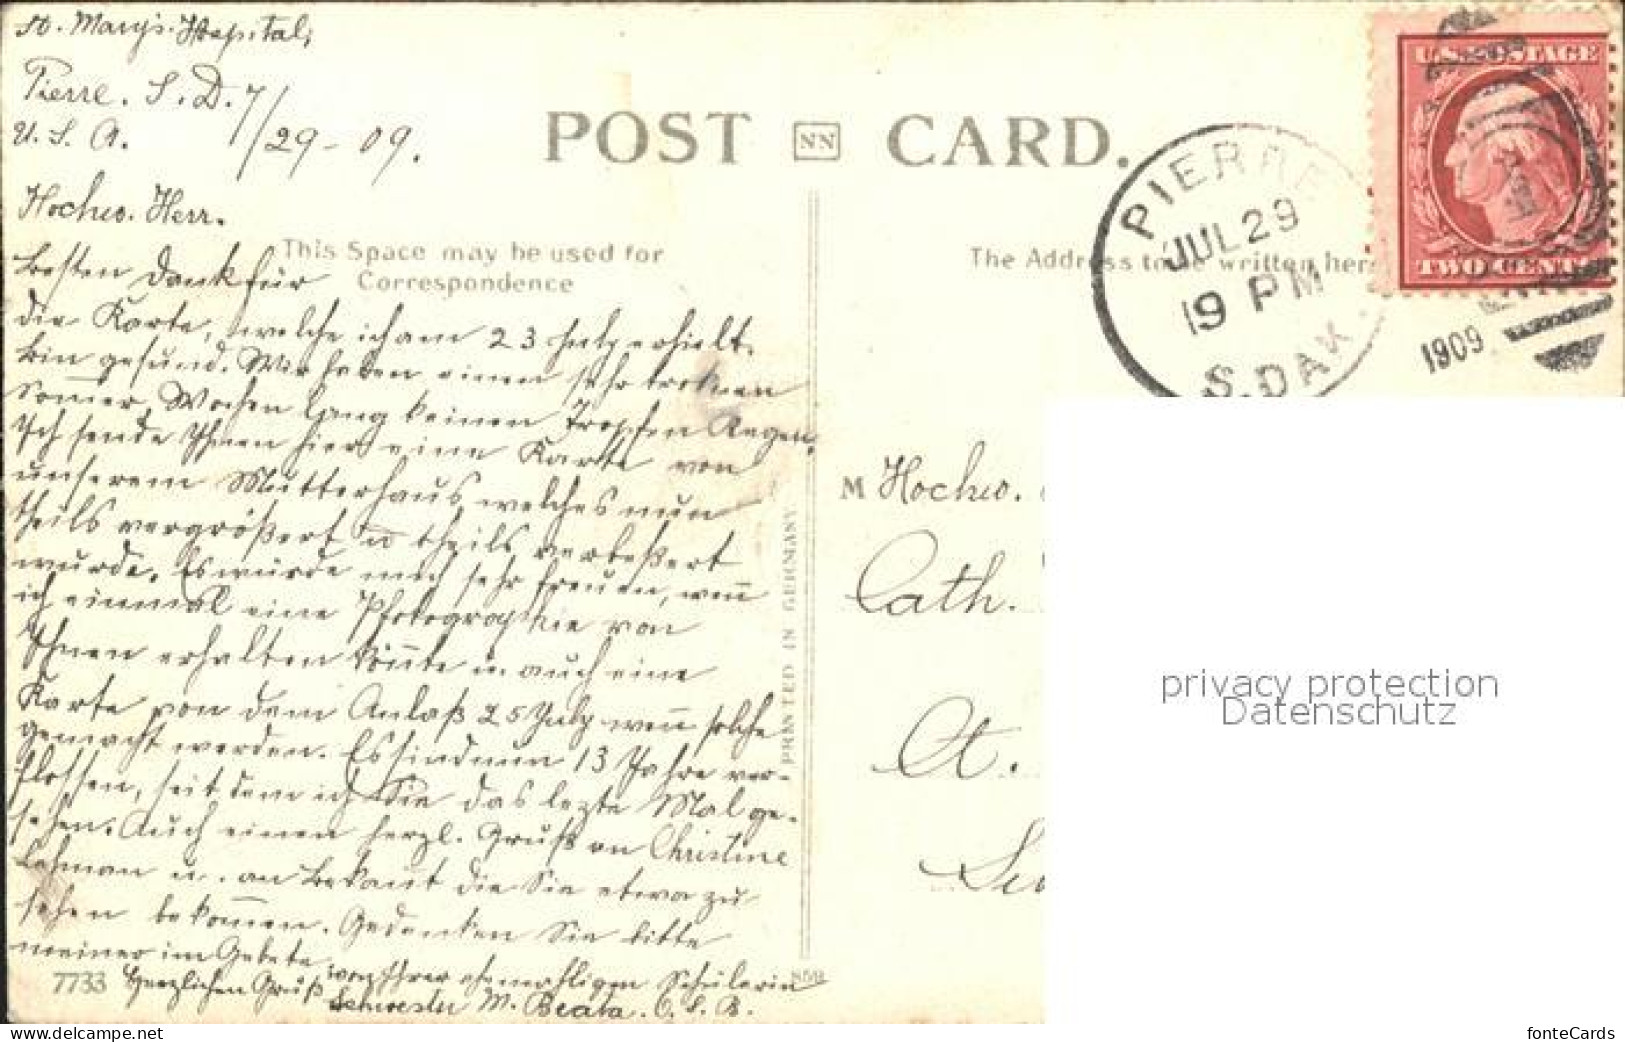 St. Mary's Hospital,
Pierre. S. D. 7/29-09.
U. S. A.
Hochw. Herr.
Besten Dank für
die Karte, welche ich am 23 July erhielt.
bin gesund. Wir haben einen sehr troknen
Som̄er, Wochen lang keinen Tropfen Regen.
Ich sende Ihnen hier eine Karte von
unserem Mutterhaus, welches nun
theils vergrößert u theils verbeßert
wurde. Es würde mich sehr freuen, wen̄
ich einmal eine Photographie von
Ihnen erhalten kön̄te u. auch eine
Karte von dem Anlaß 25 July wen̄ solche
gemacht werden. Es sind nun 13 Jahre ver-
flossen, seit dem ich Sie das lezte Mal ge-
sehen. Auch einen herzl. Gruß an Christine
Lehman u. an Bekant die Sie etwa zu
sehen bekom̄en. Gedenken Sie bitte
meiner im Gebete
Herzlichen Gruß von Ihrer ehemahligen Schülerin
Schwester M. Beata. O. S. B.
POST NN CARD.
This Space may be used for
Correspondence
The Address to be written here
PIERRE
JUL 29
9 PM
S. DAK.
1909
U.S. POSTAGE
TWO CENTS
M Hochw.
Cath.
St.
PRINTED IN GERMANY
7733
privacy protection
Datenschutz
fonteCards